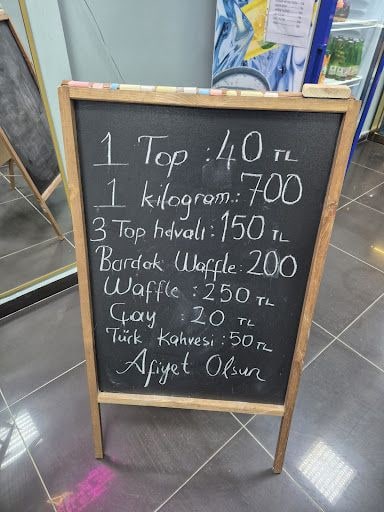 1 Top : 40 TL
1 kilogram.: 700
3 Top halvalı : 150 TL
Bardak Waffle: 200
Waffle : 250 TL
Çay : 20 TL
Türk Kahvesi : 50 TL
Afiyet Olsun